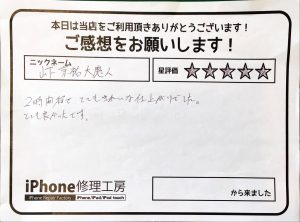 本日は当店をご利用頂きありがとうございます!
ご感想をお願いします!
ニックネーム
山下
大愚人
星評価 ★★★★★
2時間程で とてもきれいな仕上がりでした。
とても良かったです。
iPhone修理工房
iPhone Repair Factory
iPhone/iPad/iPod touch
から来ました